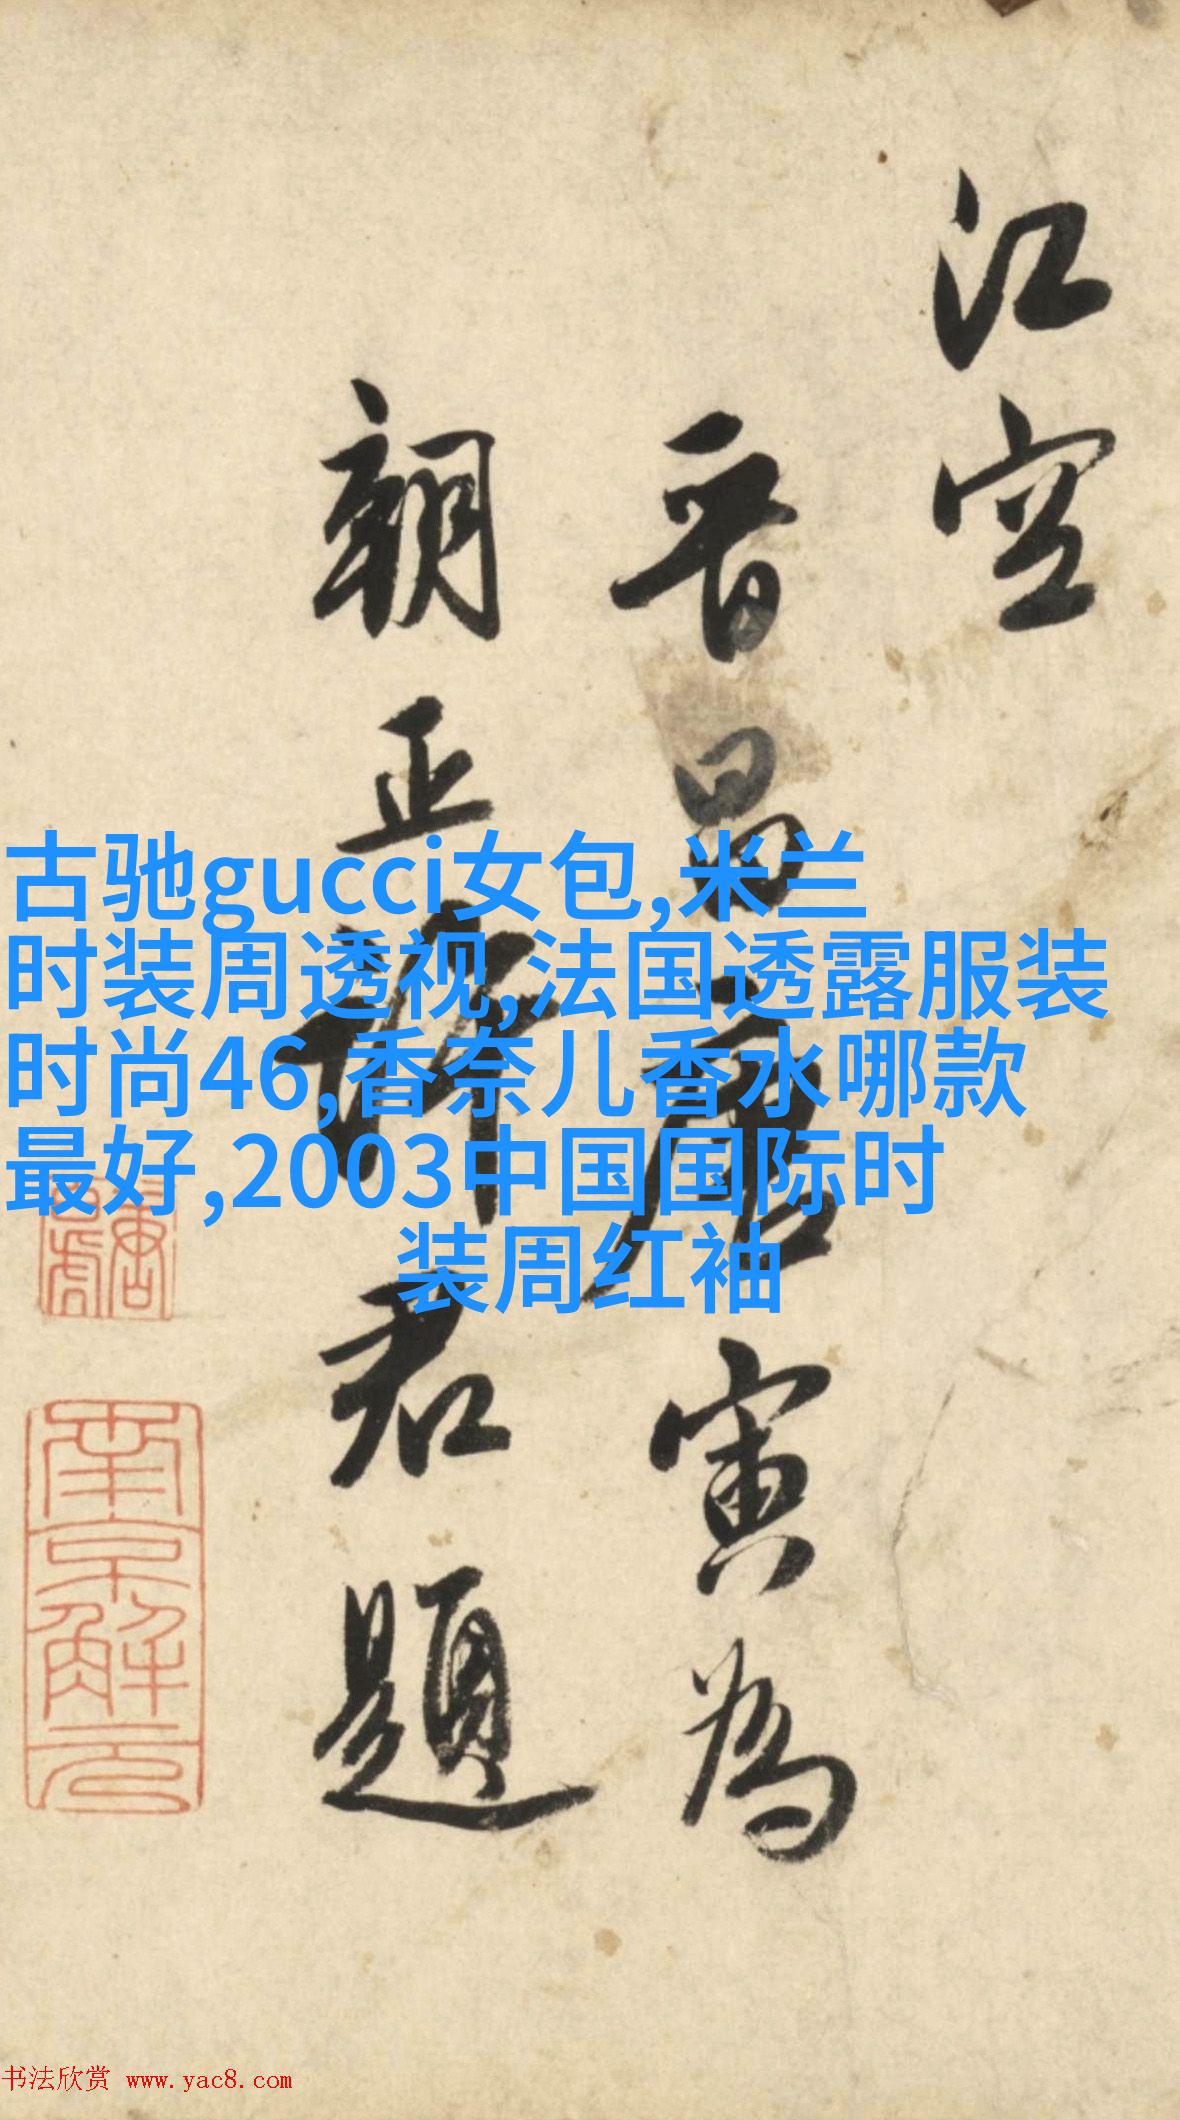 江空
晉昌唐寅為
朝正許君題
古驰gucci女包,米兰
时装周透视,法国透露服装
时尚46,香奈儿香水哪款
最好,2003中国国际时
装周红袖
唐白虎
南京解元
书法欣赏 www.yac8.com